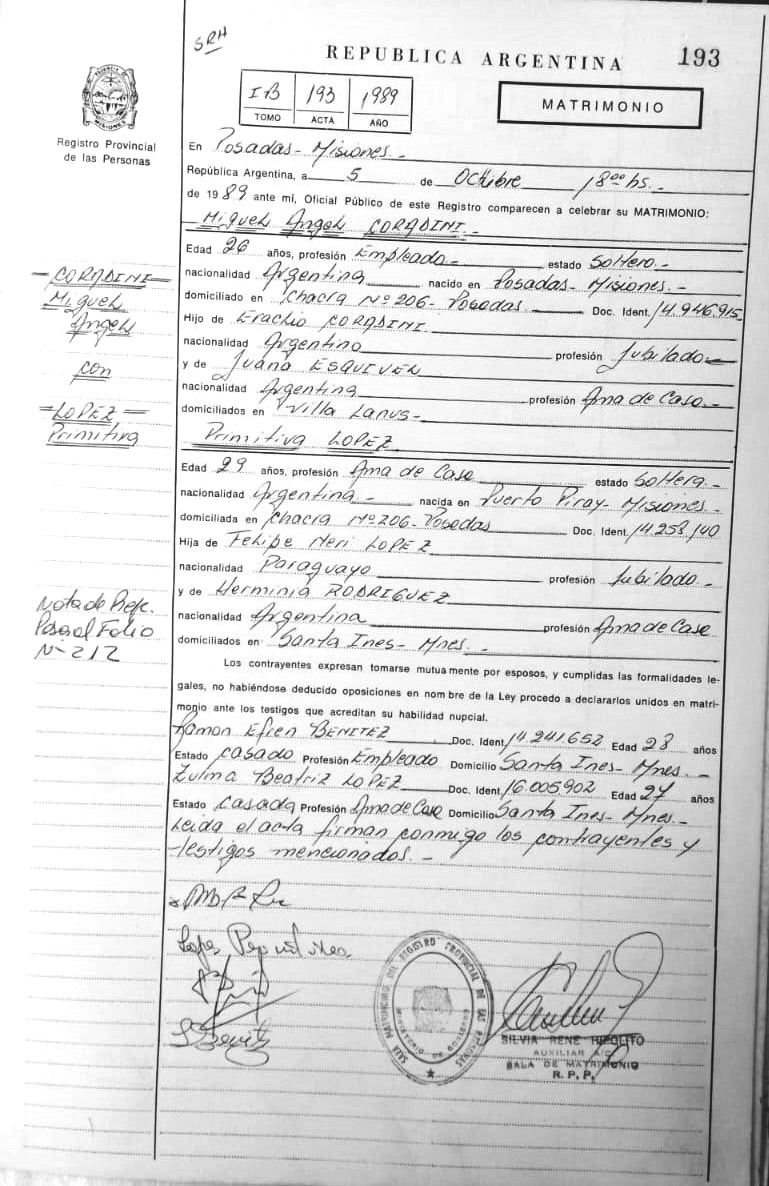 SRH
REPUBLICA ARGENTINA 193
IB 193 1989
TOMO ACTA AÑO
MATRIMONIO
PROVINCIA DE MISIONES
Registro Provincial
de las Personas
En Posadas - Misiones. -
República Argentina, a 5 de Octubre 18oo hs. -
de 1989 ante mi, Oficial Público de este Registro comparecen a celebrar su MATRIMONIO:
Miguel Angel CORADINI. -
Edad 26 años, profesión Empleado - estado Soltero. -
nacionalidad Argentina nacido en Posadas - Misiones. -
domiciliado en Chacra Nº 206 - Posadas. Doc. Ident. 14.946.915
Hijo de Eraclio CORADINI.
nacionalidad Argentino profesión Jubilado -
y de Juana ESQUIVEL
nacionalidad Argentina profesión Ama de Casa. -
domiciliados en Villa Lanus -
Primitiva LOPEZ
Edad 29 años, profesión Ama de Casa estado Soltera. -
nacionalidad Argentina - nacida en Puerto Piray - Misiones. -
domiciliada en Chacra Nº 206 - Posadas Doc. Ident. 14.258.140
Hija de Felipe Neri LOPEZ
nacionalidad Paraguayo profesión Jubilado -
y de Herminia RODRIGUEZ
nacionalidad Argentina profesión Ama de Casa
domiciliados en Santa Ines - Mnes. -
Los contrayentes expresan tomarse mutuamente por esposos, y cumplidas las formalidades le-
gales, no habiéndose deducido oposiciones en nombre de la Ley procedo a declararlos unidos en matri-
monio ante los testigos que acreditan su habilidad nupcial.
Ramon Efren BENITEZ Doc. Ident. 14.241.652 Edad 28 años
Estado Casado Profesión Empleado Domicilio Santa Ines - Mnes. -
Zulma Beatriz LOPEZ Doc. Ident. 16.005902 Edad 27 años
Estado Casada Profesión Ama de Casa Domicilio Santa Ines - Mnes. -
Leida el acta firman conmigo los contrayentes y
testigos mencionados. -
- CORADINI -
Miguel
Angel
con
- LOPEZ -
Primitiva
Nota de Refe.
Pasa al Folio
Nº 212
Benitez
SALA MATRIMONIO DEL REGISTRO PROVINCIAL DE LAS PERSONAS
MINISTERIO DE GOBIERNO
SILVIA RENE HIPOLITO
AUXILIAR A/C
SALA DE MATRIMONIO
R. P. P.